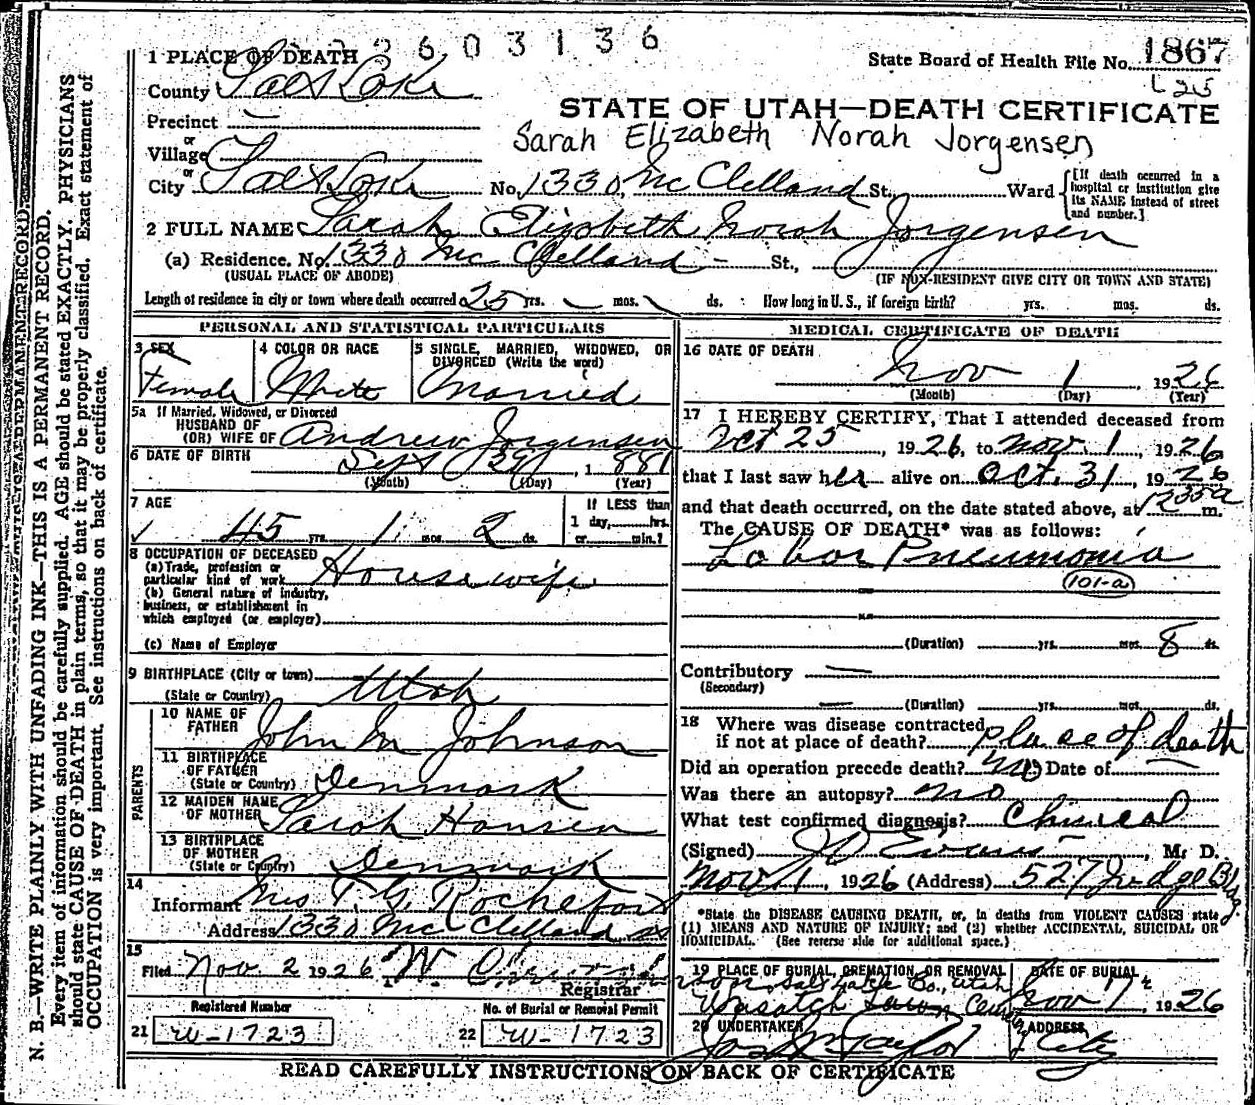 2603136
1 PLACE OF DEATH
State Board of Health File No. 1867
L25
County Salt Lake
STATE OF UTAH—DEATH CERTIFICATE
Precinct
Sarah Elizabeth Norah Jorgensen
or
Village
or
City Salt Lake No. 1330 McClelland St., Ward [If death occurred in a hospital or institution give its NAME instead of street and number.]
2 FULL NAME Sarah Elizabeth Norah Jorgensen
(a) Residence. No. 1330 McClelland - St.,
(USUAL PLACE OF ABODE) (IF NON-RESIDENT GIVE CITY OR TOWN AND STATE)
Length of residence in city or town where death occurred 25 yrs. — mos. ds. How long in U. S., if foreign birth? yrs. mos. ds.
PERSONAL AND STATISTICAL PARTICULARS
3 SEX
Female
4 COLOR OR RACE
White
5 SINGLE, MARRIED, WIDOWED, OR
DIVORCED (Write the word)
Married
5a If Married, Widowed, or Divorced
HUSBAND OF
(OR) WIFE OF Andrew Jorgensen
6 DATE OF BIRTH Sept 29, 1881
(Month) (Day) (Year)
7 AGE
45 yrs. 1 mos. 2 ds.
If LESS than
1 day, hrs.
or min.?
8 OCCUPATION OF DECEASED
(a) Trade, profession or
particular kind of work Housewife
(b) General nature of industry,
business, or establishment in
which employed (or employer)
(c) Name of Employer
9 BIRTHPLACE (City or town)
(State or Country) Utah
PARENTS
10 NAME OF
FATHER John M Johnson
11 BIRTHPLACE
OF FATHER
(State or Country) Denmark
12 MAIDEN NAME
OF MOTHER Sarah Hansen
13 BIRTHPLACE
OF MOTHER
(State or Country) Denmark
14
Informant Mrs T. G. Rocheford
Address 1330 McClelland
15
Filed Nov 2 1926 W.
Registrar
Registered Number
21 W-1723
No. of Burial or Removal Permit
22 W-1723
MEDICAL CERTIFICATE OF DEATH
16 DATE OF DEATH
Nov 1, 1926
(Month) (Day) (Year)
17 I HEREBY CERTIFY, That I attended deceased from
Oct 25, 1926, to Nov. 1, 1926
that I last saw her alive on Oct. 31, 1926
and that death occurred, on the date stated above, at 1235a m.
The CAUSE OF DEATH* was as follows:
Lobar Pneumonia
101-a
(Duration) yrs. mos. 8 ds.
Contributory —
(Secondary)
(Duration) yrs. mos. ds.
18 Where was disease contracted
if not at place of death? place of death
Did an operation precede death? No Date of
Was there an autopsy? no
What test confirmed diagnosis? Clinical
(Signed) J Evans, M. D.
Nov 1, 1926 (Address) 527 Judge Bldg.
*State the DISEASE CAUSING DEATH, or, in deaths from VIOLENT CAUSES state
(1) MEANS AND NATURE OF INJURY; and (2) whether ACCIDENTAL, SUICIDAL OR
HOMICIDAL. (See reverse side for additional space.)
19 PLACE OF BURIAL, CREMATION, OR REMOVAL
Salt Lake Co., Utah
Wasatch Lawn Cem
DATE OF BURIAL
Nov 1926
20 UNDERTAKER
Jos Wm Taylor
ADDRESS
City
READ CAREFULLY INSTRUCTIONS ON BACK OF CERTIFICATE
N. B.—WRITE PLAINLY WITH UNFADING INK—THIS IS A PERMANENT RECORD.
Every item of information should be carefully supplied. AGE should be stated EXACTLY. PHYSICIANS
should state CAUSE OF DEATH in plain terms, so that it may be properly classified. Exact statement of
OCCUPATION is very important. See instructions on back of certificate.